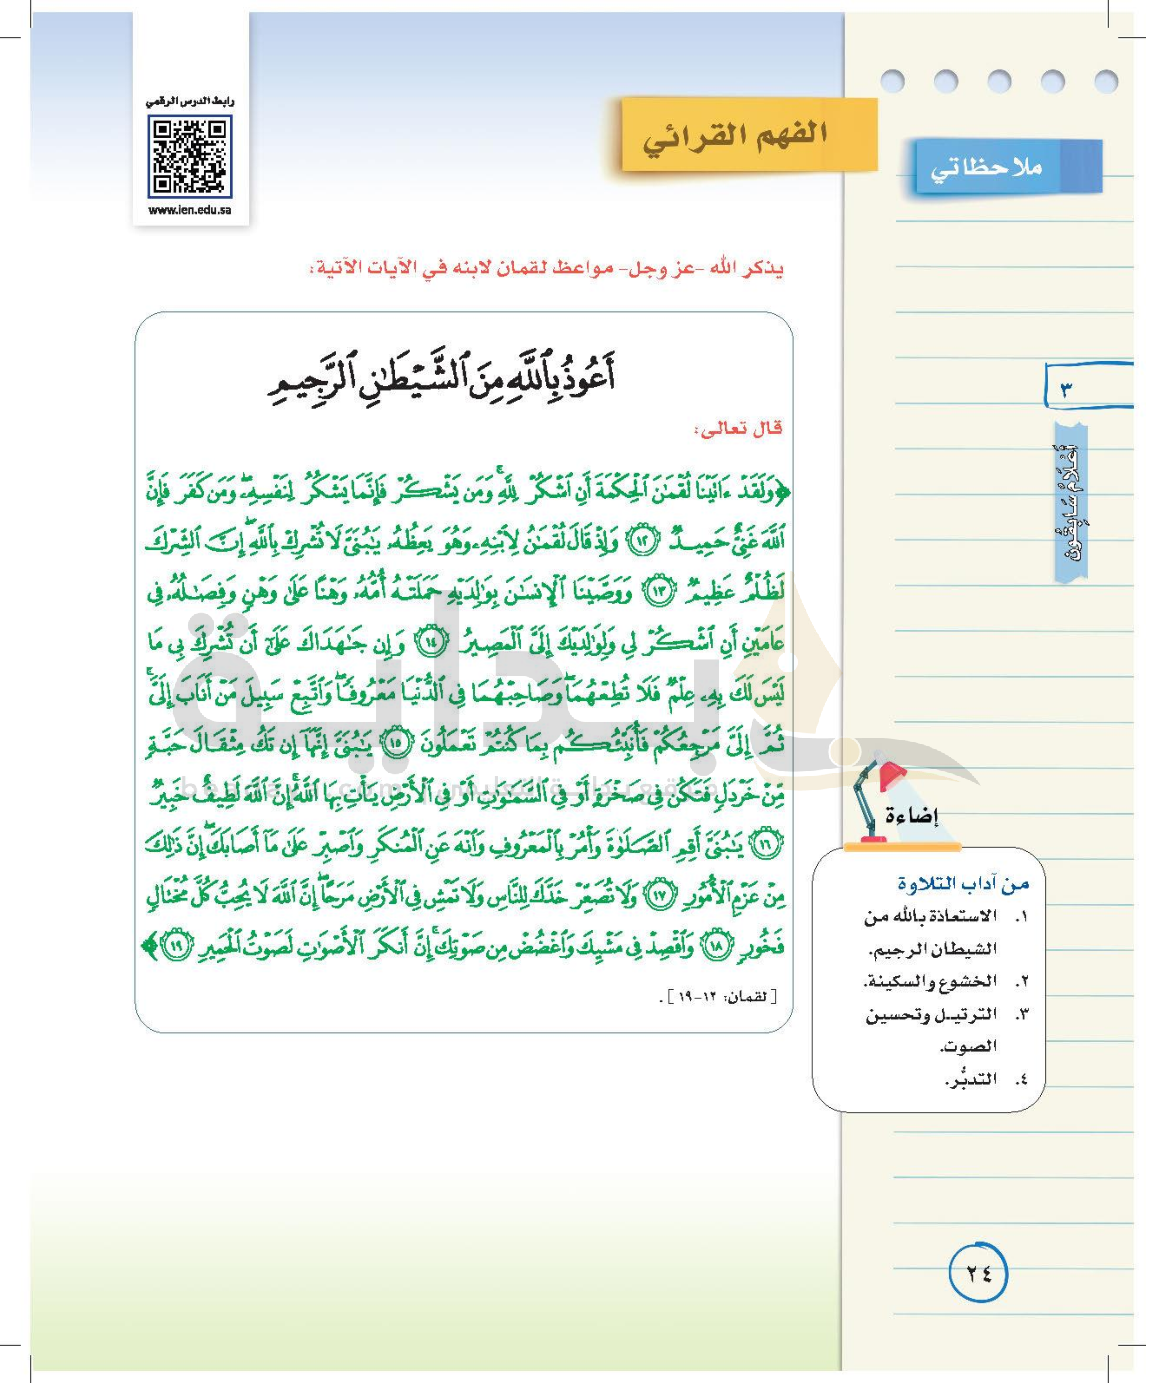 رابط الدرس الرقمي
www.ien.edu.sa
الفهم القرائي
ملاحظاتي
يذكر الله -عز وجل- مواعظ لقمان لابنه في الآيات الآتية:
أَعُوذُ بِٱللَّهِ مِنَ ٱلشَّيْطَٰنِ ٱلرَّجِيمِ
قال تعالى:
﴿وَلَقَدْ ءَاتَيْنَا لُقْمَٰنَ ٱلْحِكْمَةَ أَنِ ٱشْكُرْ لِلَّهِ ۚ وَمَن يَشْكُرْ فَإِنَّمَا يَشْكُرُ لِنَفْسِهِۦ ۖ وَمَن كَفَرَ فَإِنَّ
ٱللَّهَ غَنِيٌّ حَمِيدٌ ١٢ وَإِذْ قَالَ لُقْمَٰنُ لِٱبْنِهِۦ وَهُوَ يَعِظُهُۥ يَٰبُنَيَّ لَا تُشْرِكْ بِٱللَّهِ ۖ إِنَّ ٱلشِّرْكَ
لَظُلْمٌ عَظِيمٌ ١٣ وَوَصَّيْنَا ٱلْإِنسَٰنَ بِوَٰلِدَيْهِ حَمَلَتْهُ أُمُّهُۥ وَهْنًا عَلَىٰ وَهْنٍ وَفِصَٰلُهُۥ فِي
عَامَيْنِ أَنِ ٱشْكُرْ لِي وَلِوَٰلِدَيْكَ إِلَيَّ ٱلْمَصِيرُ ١٤ وَإِن جَٰهَدَاكَ عَلَىٰٓ أَن تُشْرِكَ بِي مَا
لَيْسَ لَكَ بِهِۦ عِلْمٌ فَلَا تُطِعْهُمَا ۖ وَصَاحِبْهُمَا فِي ٱلدُّنْيَا مَعْرُوفًا ۖ وَٱتَّبِعْ سَبِيلَ مَنْ أَنَابَ إِلَيَّ ۚ
ثُمَّ إِلَيَّ مَرْجِعُكُمْ فَأُنَبِّئُكُم بِمَا كُنتُمْ تَعْمَلُونَ ١٥ يَٰبُنَيَّ إِنَّهَآ إِن تَكُ مِثْقَالَ حَبَّةٍ
مِّنْ خَرْدَلٍ فَتَكُن فِي صَخْرَةٍ أَوْ فِي ٱلسَّمَٰوَٰتِ أَوْ فِي ٱلْأَرْضِ يَأْتِ بِهَا ٱللَّهُ ۚ إِنَّ ٱللَّهَ لَطِيفٌ خَبِيرٌ
١٦ يَٰبُنَيَّ أَقِمِ ٱلصَّلَوٰةَ وَأْمُرْ بِٱلْمَعْرُوفِ وَٱنْهَ عَنِ ٱلْمُنكَرِ وَٱصْبِرْ عَلَىٰ مَآ أَصَابَكَ ۖ إِنَّ ذَٰلِكَ
مِنْ عَزْمِ ٱلْأُمُورِ ١٧ وَلَا تُصَعِّرْ خَدَّكَ لِلنَّاسِ وَلَا تَمْشِ فِي ٱلْأَرْضِ مَرَحًا ۖ إِنَّ ٱللَّهَ لَا يُحِبُّ كُلَّ مُخْتَالٍ
فَخُورٍ ١٨ وَٱقْصِدْ فِي مَشْيِكَ وَٱغْضُضْ مِن صَوْتِكَ ۚ إِنَّ أَنكَرَ ٱلْأَصْوَٰتِ لَصَوْتُ ٱلْحَمِيرِ ١٩﴾
[لقمان: ١٢-١٩].
٣
أَعْلَامٌ سَابِقُون
إضاءة
من آداب التلاوة
١. الاستعاذة بالله من
الشيطان الرجيم.
٢. الخشوع والسكينة.
٣. الترتيل وتحسين
الصوت.
٤. التدبُّر.
٢٤
بداية